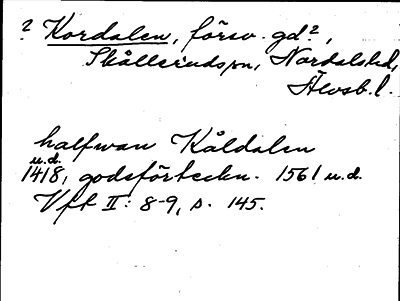 ? Kordalen, försv. gd?,
Skållerudspn, Nordalshd,
Älvsb.l.
halfwan Kåldalen
u.d.
1418, godsförteckn. 1561 u.d.
Vft II: 8-9, s. 145.